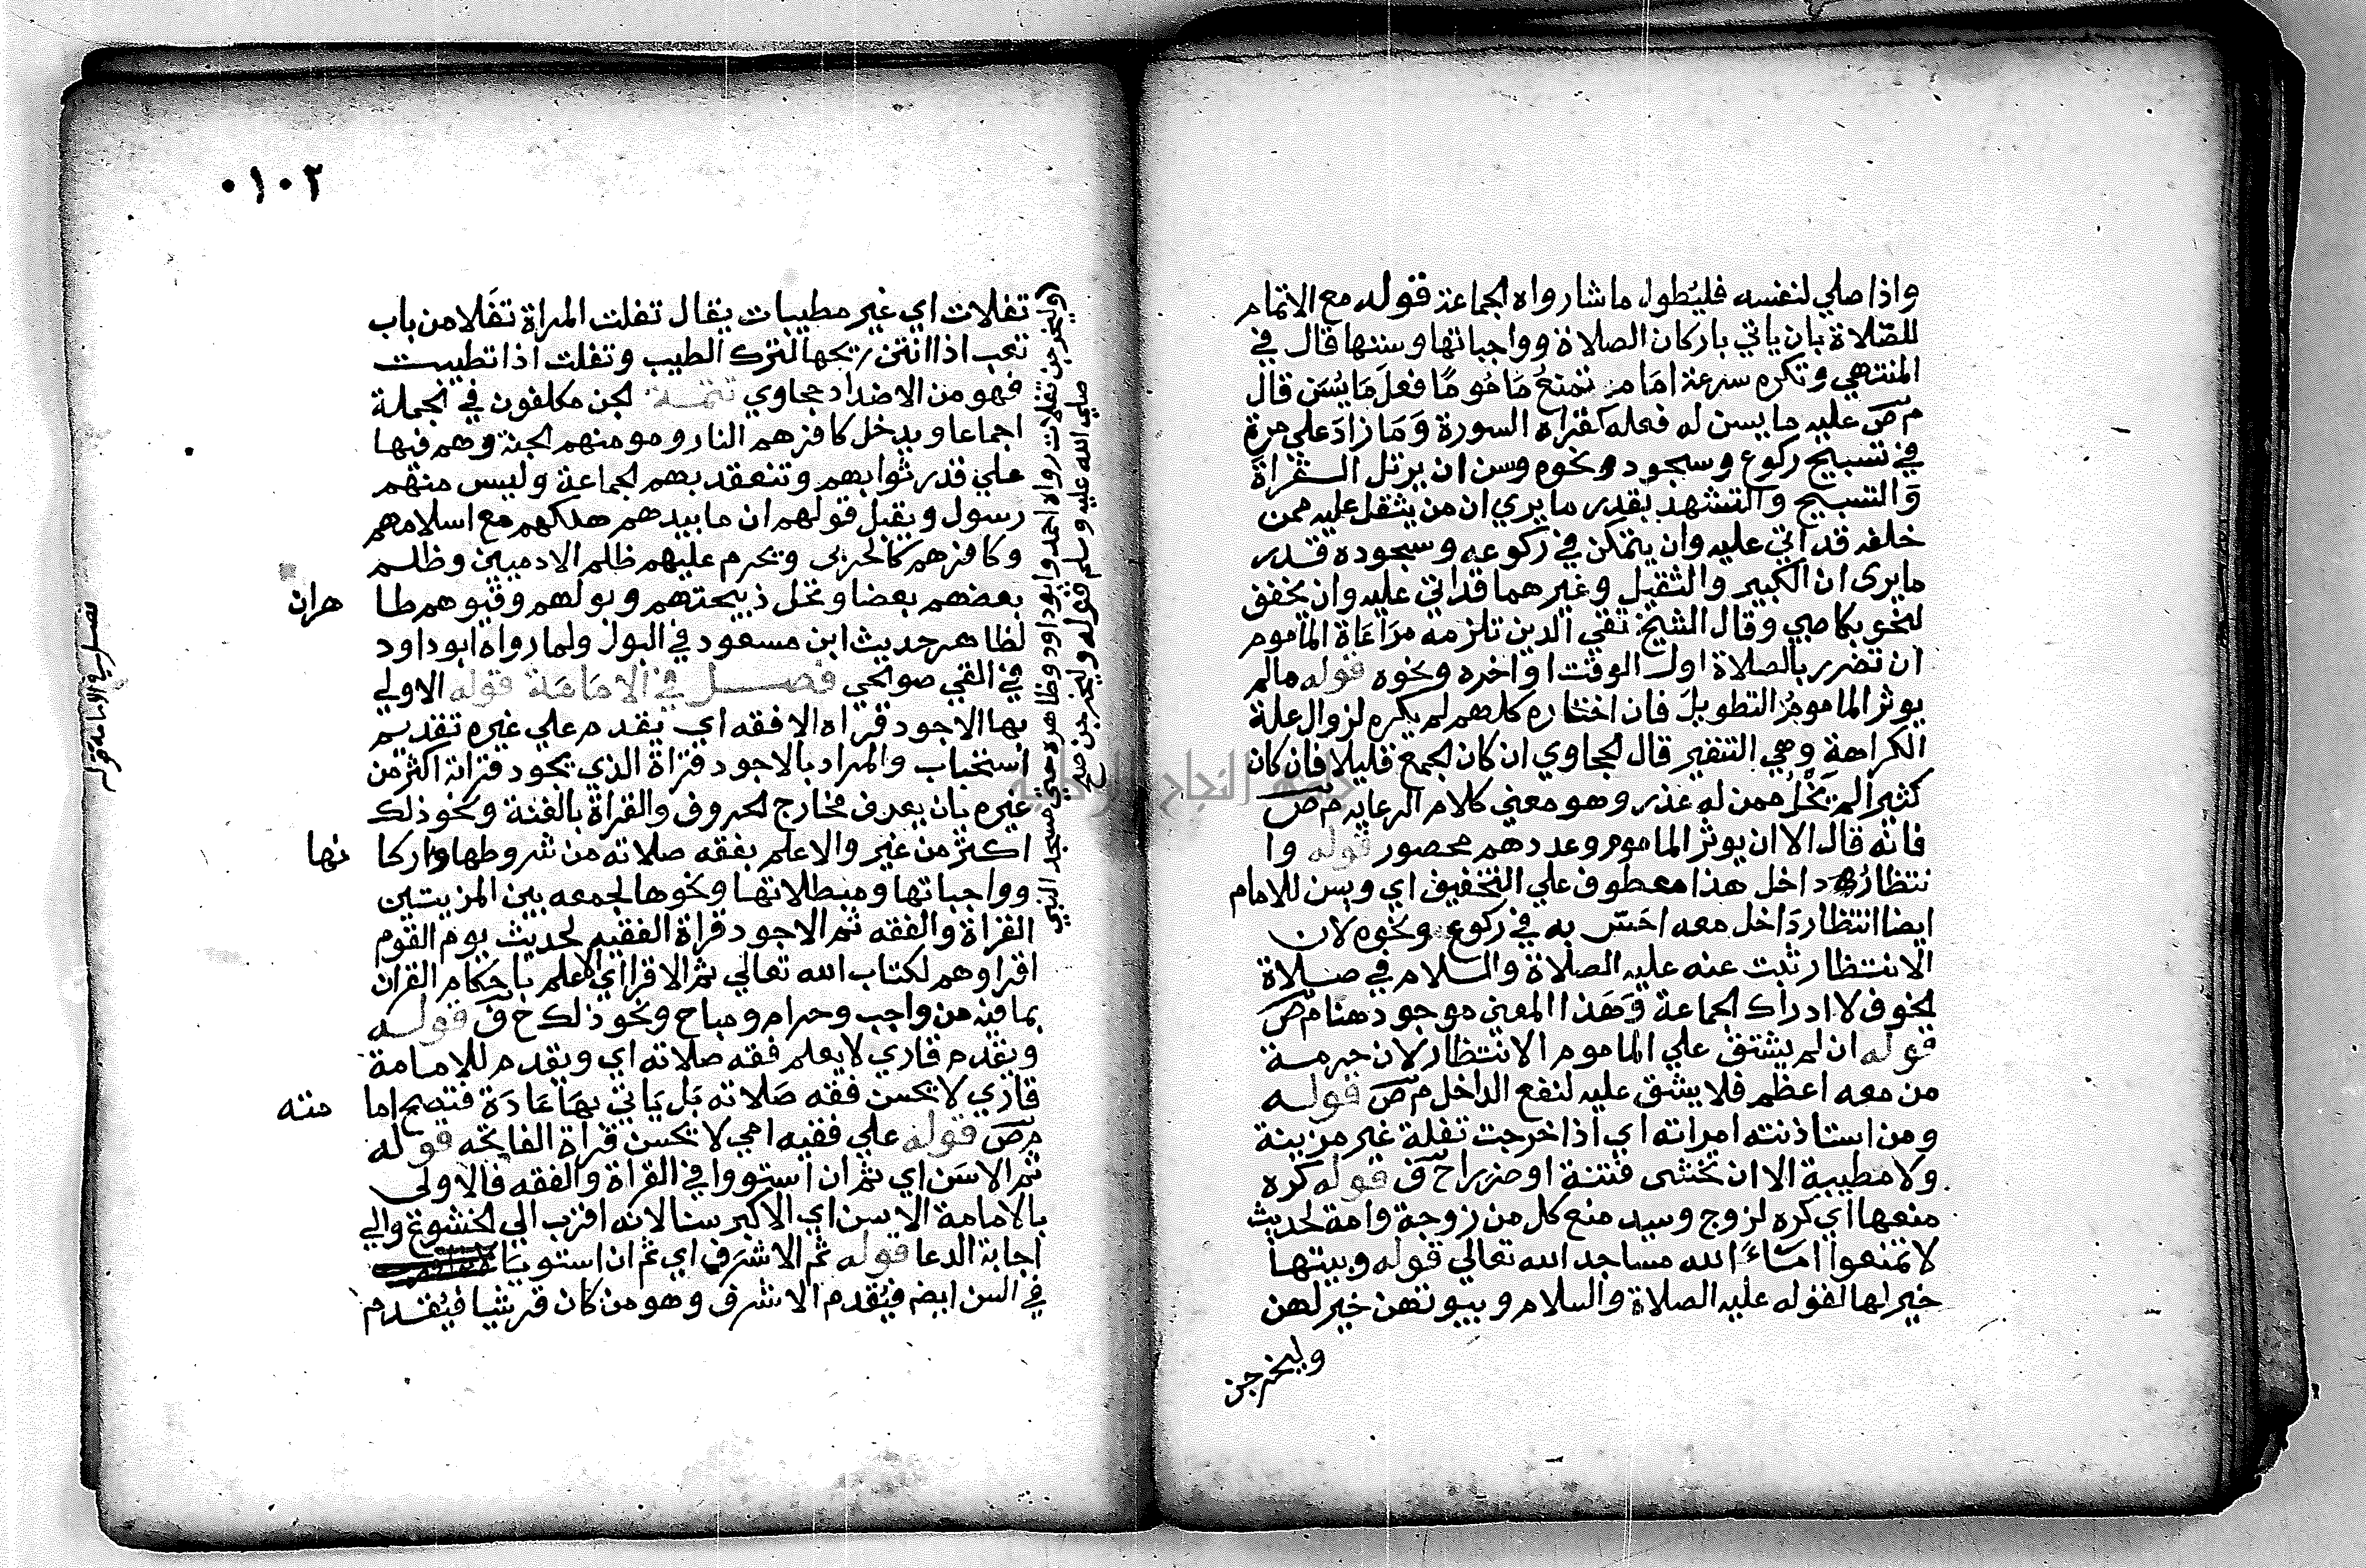 واذا صلي لنفسه فليُطول ما شا رواه الجماعة قوله مع الاتمام
للصّلاة بان ياتي باركان الصلاة وواجباتها وسننها قال في
المنتهي وتكره سرعة امام تمنعُ مَامُومًا فعلَ مَا يُسَن قال
م ص عليه ما يسن له فعله كقراه السورة وَمَا زادَ علي مرة
في تسبيح ركوع وسجود ونحوه وسن ان يرتل القراة
وَالتسبيح والتشهد بقدر ما يري ان من يثقل عليه ممن
خلفه قد اتي عليه وان يتمكن في ركوعه وسجوده قدر
ما يرى ان الكبير والثقيل وغيرهما قد اتي عليه وان يخفف
لنحو بكا صبي وقال الشيخ تقي الدين تلزمه مرَاعَاة الماموم
ان تضرر بالصلاة اول الوقت او اخره ونحوه قوله ما لم
يوثر المامومُ التطويل فان اختاره كلهم لم يكره لزوال علة
الكراهة وهي التنفير قال الحجاوي ان كان الجمع قليلا فان كان
كثيرا لم يَخْلُ ممن له عذر وهو معني كلام الرعايه م ص
فانه قال الا ان يوثر الماموم وعددهم محصور قوله وا
نتظارُ داخل هذا معطوف علي التخفيف اي ويسن للامام
ايضا انتظار دَاخل معه احَسّ به في ركوع ونحوه لان
الانتظار ثبت عنه عليه الصلاة والسلام في صلاة
الخوف لا ادراك الجماعة وَهَذا المعني موجود هنا م ص
قوله ان لم يشق علي الماموم الانتظار لان حرمة
من معه اعظم فلا يشق عليه لنفع الداخل م ص قوله
ومن استاذنته امراته اي اذا خرجت تفلة غير مزينة
ولا مطيبة الا ان تخشى فتنة او ضررا ح ف قوله كره
منعها اي كره لزوج وسيد منع كل من زوجة وامة لحديث
لا تمنعوا امَاءَ الله مساجد الله تعالي قوله وبيتها
خير لها لقوله عليه الصلاة والسلام وبيوتهن خير لهن
وليخرجن
٠١٠٢
تفلات اي غير مطيبات يقال تفلت المراة تفَلا من باب
تعب اذا انتن ريحها لترك الطيب وتفلت اذا تطيبت
فهو من الاضداد حجاوي تتمة الجن مكلفون في الجملة
اجماعا ويدخل كافرهم النار ومومنهم الجنة وهم فيها
علي قدر ثوابهم وتنعقد بهم الجماعة وليس منهم
رسول ويقبل قولهم ان ما بيدهم ملكهم مع اسلامهم
وكافرهم كالحربي ويحرم عليهم ظلم الادميين وظلم
بعضهم بعضا وتحل ذبيحتهم وبولهم وقيوهم طا هران
لظاهر حديث ابن مسعود في البول ولما رواه ابو داود
في القي صوالحي فصل في الامَامَة قوله الاولي
بها الاجود قراه الافقه اي يقدم علي غيره تقديم
استحباب والمراد بالاجود قراة الذي يجود قراته اكثر من
غيره بان يعرف مخارج الحروف والقراة بالغنة ونحو ذلك
اكثر من غير والاعلم بفقه صلاته من شروطها واركا نها
وواجباتها ومبطلاتها ونحوها لجمعه بين المزيتين
القراة والفقه ثم الاجود قراة الفقيه لحديث يوم القوم
اقراوهم لكتاب الله تعالي ثم الاقرا اي الاعلم باحكام القران
بما فيه من واجب وحرام ومباح ونحو ذلك ح ف قوله
ويقدم قاري لا يعلم فقه صلاته اي ويقدم للامامة
قاري لا يحسن فقه صَلاته بَل يَاتي بهَا عَادَة فتصح اما مته
م ص قوله علي فقيه امي لا يحسن قراة الفاتحه قوله
ثم الاسَن اي ثم ان استووا في القراة والفقه فالاولى
بالامامة الاسن اي الاكبر سنا لانه اقرب الي الخشوع والي
اجابة الدعا قوله ثم الاشرَف اي ثم ان استويَا
في السن ايضم فيُقدم الاشرف وهو من كان قرشيا فيُقدم
وليخرجن تفلات رواه احمد وابو داود وظاهره حتي مسجد النبي
صلي الله عليه وسلم قوله وليخرجن
فصل في الامامة قوله